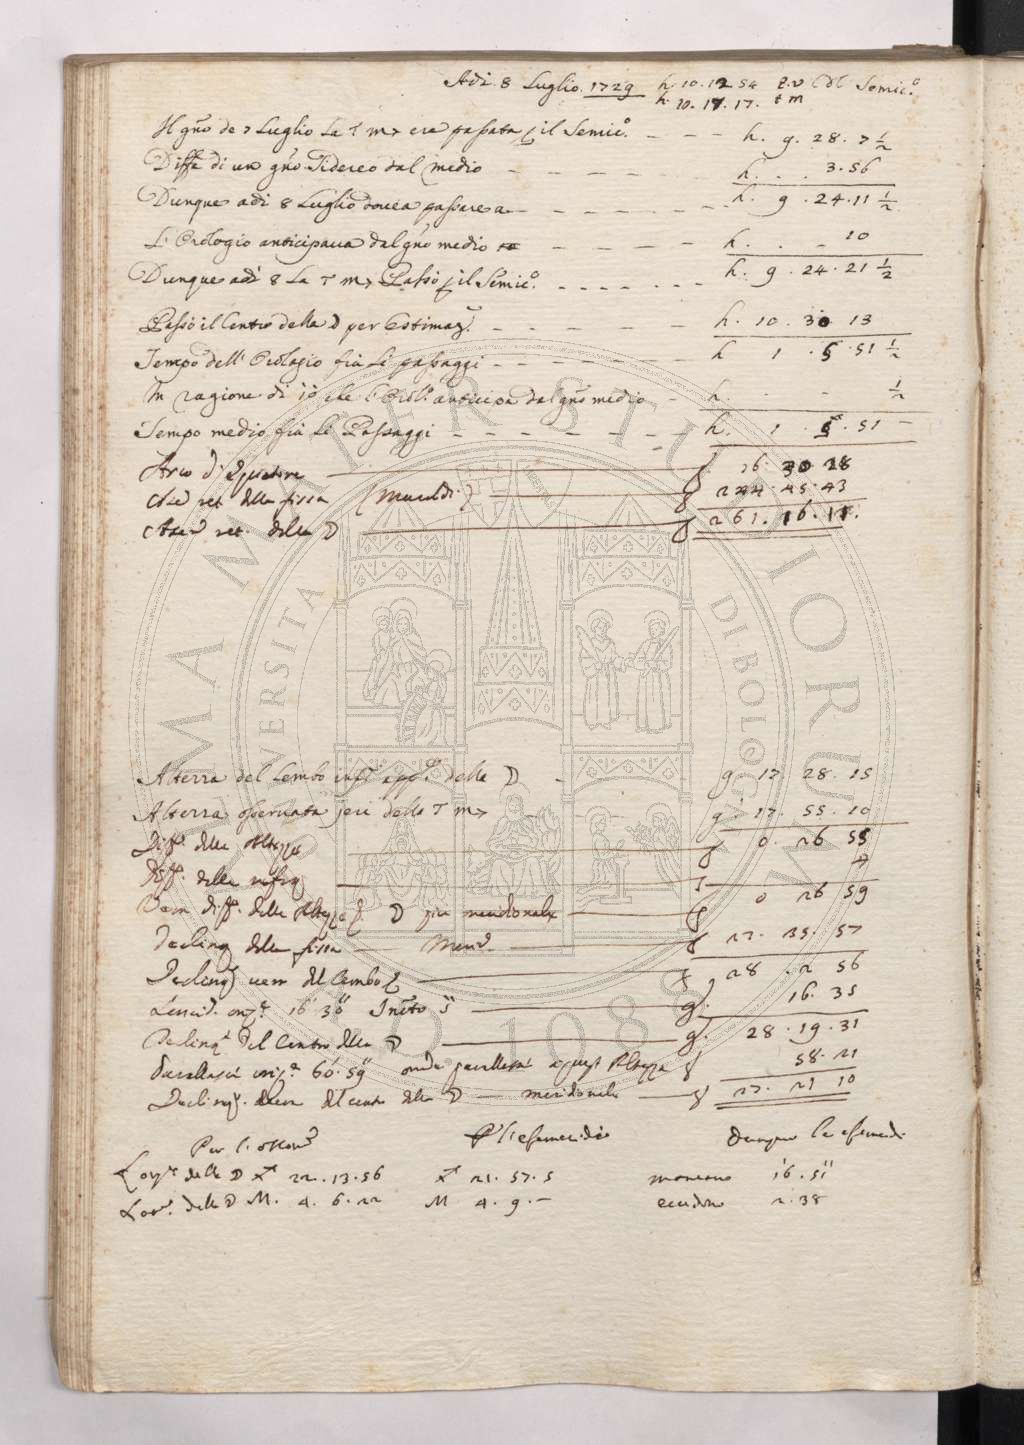 Adi 8 Luglio 1729 h. 10. 12. 54 t. v Cdl Semic.o
h. 10. 17. 17. t m
Il gno de 7 Luglio la τ ♏ era passata p il Semic.o h. 9. 28. 7 1/2
Diffa di un gno Sidereo dal medio h. . . 3. 56
Dunque adi 8 Luglio dovea passare a h. 9. 24. 11 1/2
L'Orologio anticipava dal gno medio h. . . 10
Dunque adi 8 La τ ♏ Passò p il Semic.o h. 9. 24. 21 1/2
Passò il Centro della ☽ per Estimaz. h. 10. 30 13
Tempo dell'Orologio frà li passaggi h 1 . 5. 51 1/2
In ragione di 10 che l'Orol.o anticipa dal gno medio h. . . 1/2
Tempo medio frà li Passaggi h. 1 5. 51 —
Arco d'Equatore g. 16. 30 28
Asc ret. della fissa (Maraldi) g 244. 45. 43
Asc ret. della ☽ g 261. 16. 11.
ALMA MATER STUDIORUM
UNIVERSITÀ DI BOLOGNA
A.D. 1088
Alterra del Lembo inf. app. della ☽ g. 17. 28. 15
Alterra osservata jeri della τ ♏ g. 17. 55. 10
Diff. delle Altezze g 0. 26 55
Diff. delle refraz 4
Vera diff. delle Altezze ☽ più meridionale g 0 26 59
Declinaz della fissa Merid. g 27. 35. 57
Declinaz vera del Lembo g 28 . 2 56
16' 30" 5" g. 16. 35
Declinaz del Centro della ☽ g. 28. 19. 31
Parallasse 60'. 59" onde parallasse a quest'Altezza g 58. 21
Declinaz. vera del centro della ☽ meridionale g 27. 21 10
Per l'osserv. P l'efemeridi Dunque le efemeridi
Long. della ☽ ♐ 22. 13. 56 ♐ 21. 57. 5 mancano 16'. 51"
Lat. della ☽ M. 4. 6. 22 M 4. 9. — eccedono 2. 38